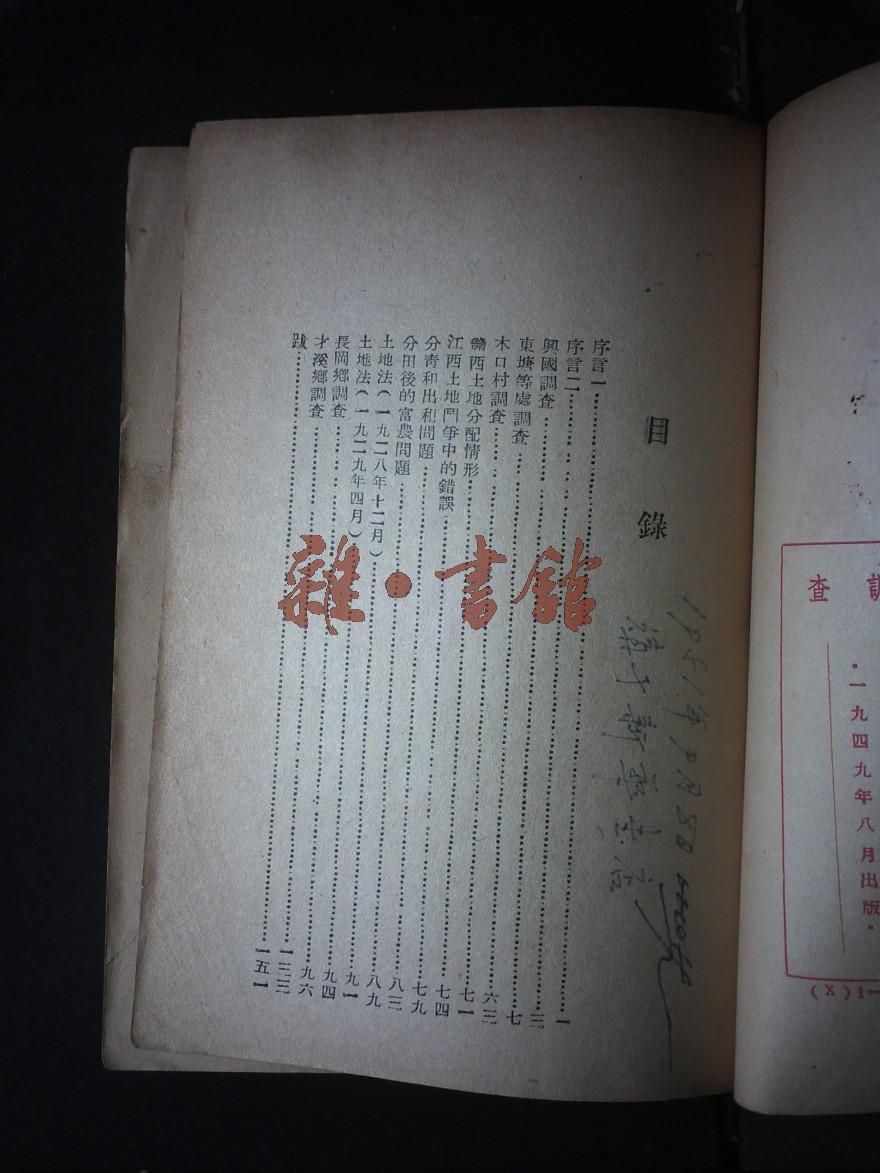 目錄
序言一……一
序言二……三
興國調查……七
東塘等處調查……六三
木口村調查……七一
贛西土地分配情形……七四
江西土地鬥爭中的錯誤……七九
分青和出租問題……八三
分田後的富農問題……八九
土地法(一九二八年十二月)……九一
土地法(一九二九年四月)……九四
長岡鄉調查……九六
才溪鄉調查……一三三
跋……一五一
1951年9月8日
新華書店
雜·書館
調查
·一九四九年八月出版·
(X)1—